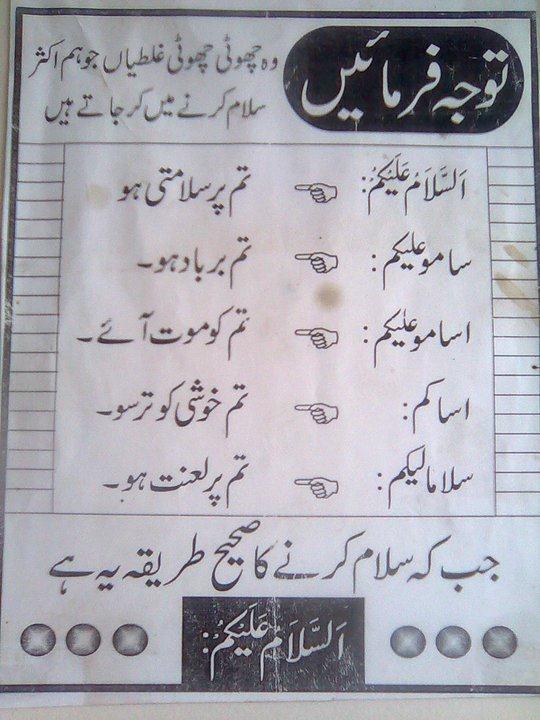 توجہ فرمائیں
وہ چھوٹی چھوٹی غلطیاں جو ہم اکثر
سلام کرنے میں کر جاتے ہیں
اَلسَّلَامُ عَلَیْکُمْ: تم پر سلامتی ہو
سامو علیکم: تم برباد ہو۔
اسامو علیکم: تم کو موت آئے۔
اساکم: تم خوشی کو ترسو۔
سلامالیکم: تم پر لعنت ہو۔
جب کہ سلام کرنے کا صحیح طریقہ یہ ہے
اَلسَّلَامُ عَلَیْکُمْ: